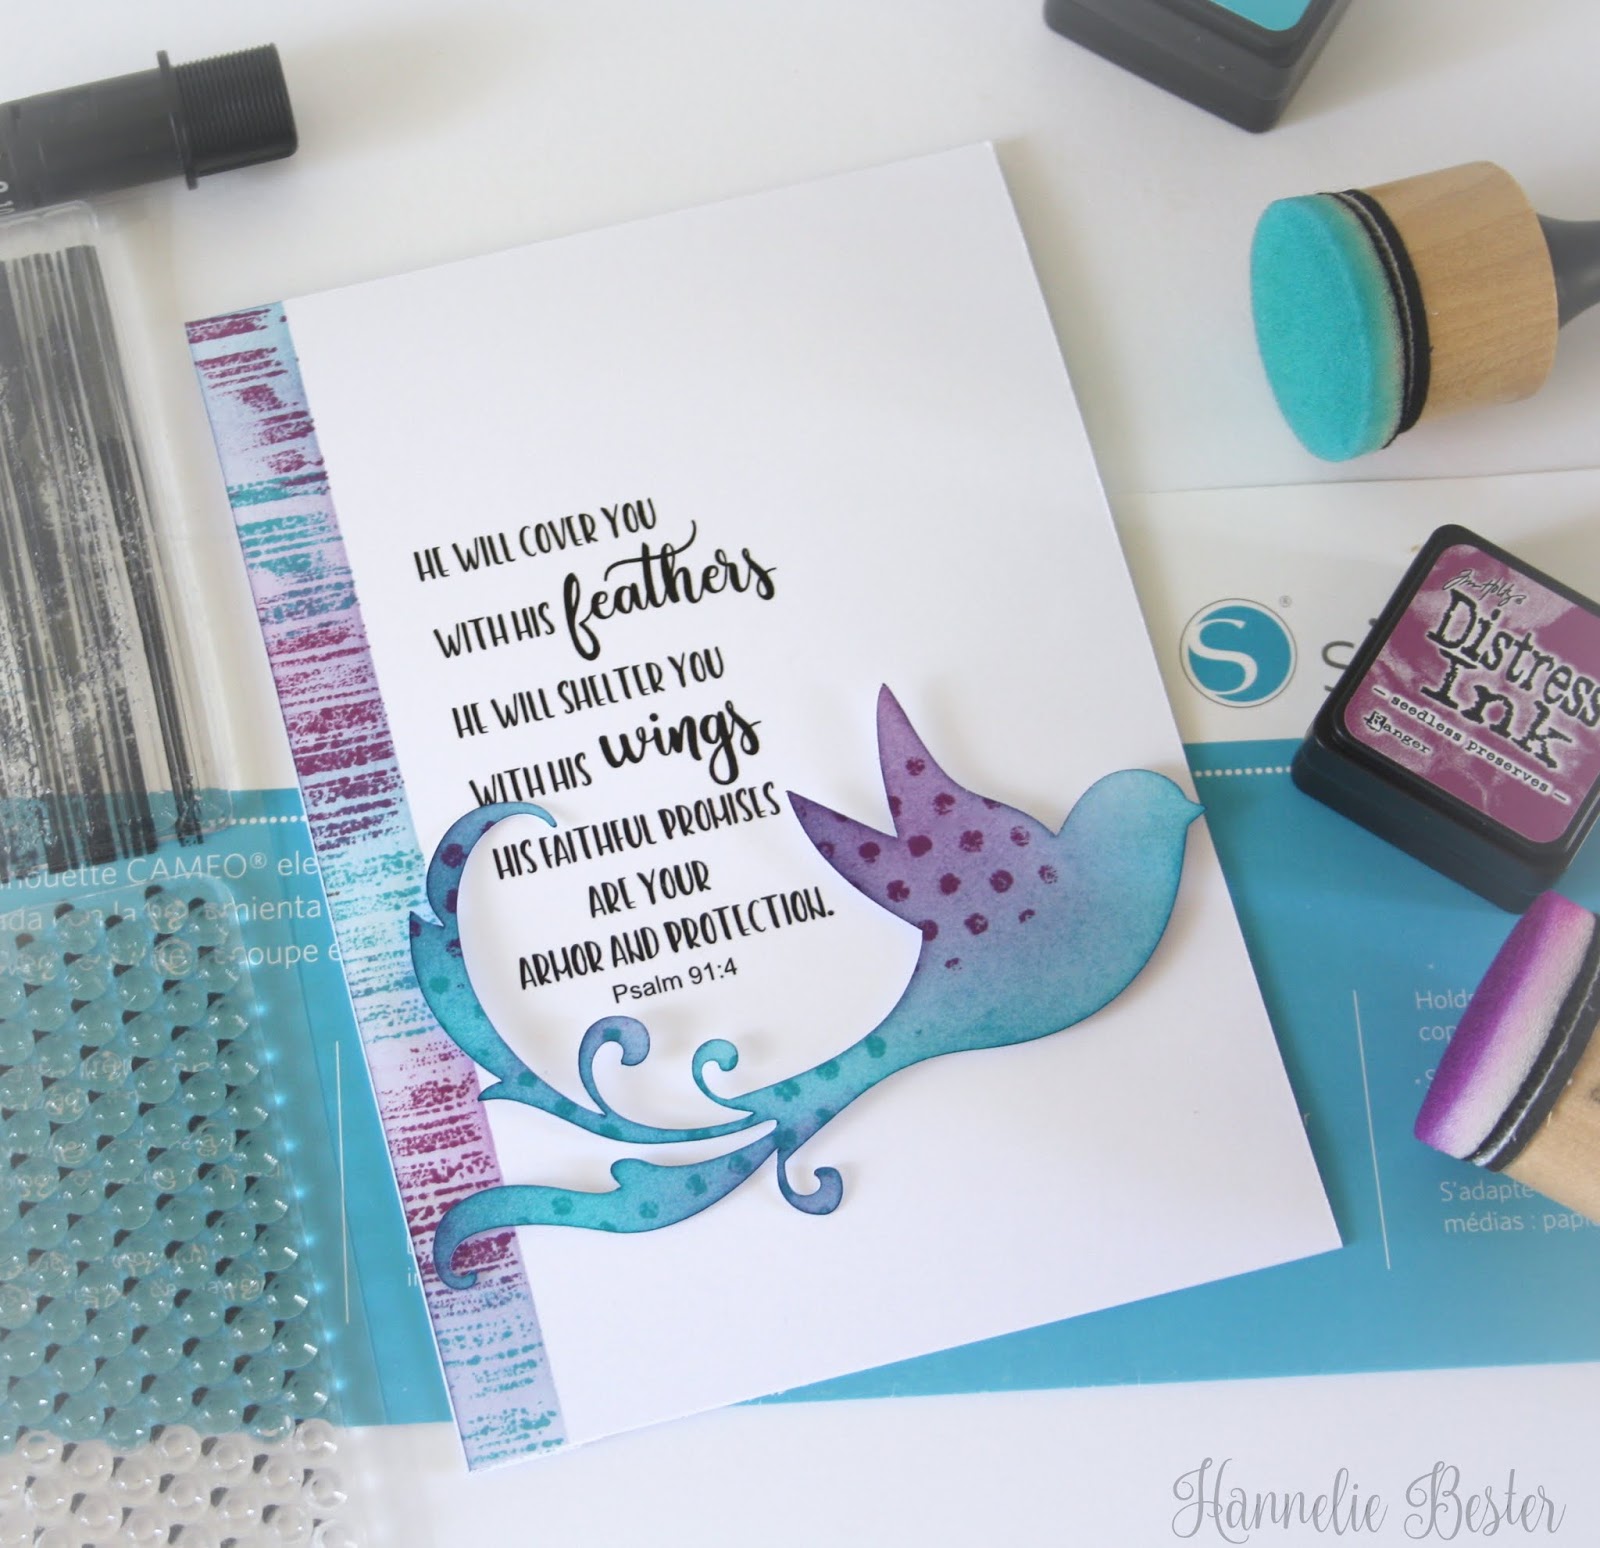 HE WILL COVER YOU
WITH HIS feathers
HE WILL SHELTER YOU
WITH HIS wings
HIS FAITHFUL PROMISES
ARE YOUR
ARMOR AND PROTECTION.
Psalm 91:4
S
®
Tim Holtz
Distress
Ink
— seedless preserves —
Ranger
CAMEO® ele
con la
coupe
Holds
S'adapte
médias : papi
Hannelie Bester